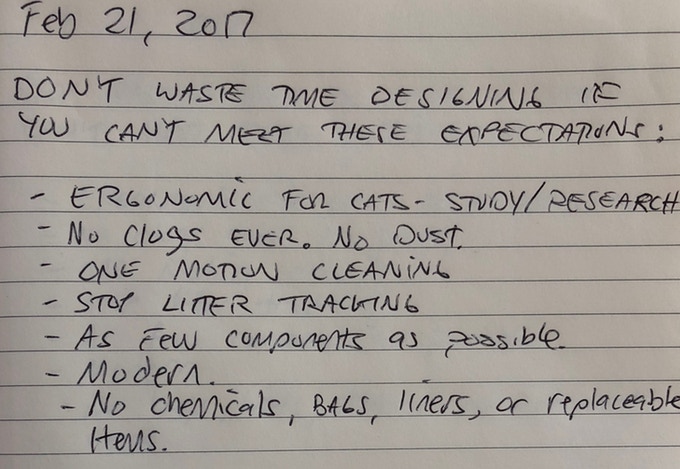 Feb 21, 2017
DON'T WASTE TIME DESIGNING IF
YOU CAN'T MEET THESE EXPECTATIONS:
- ERGONOMIC FOR CATS- STUDY/RESEARCH
- No Clogs EVER. No DUST.
- ONE MOTION CLEANING
- STOP LITTER TRACKING
- As Few components as possible.
- Modern.
- No chemicals, BAGS, liners, or replaceable
Items.